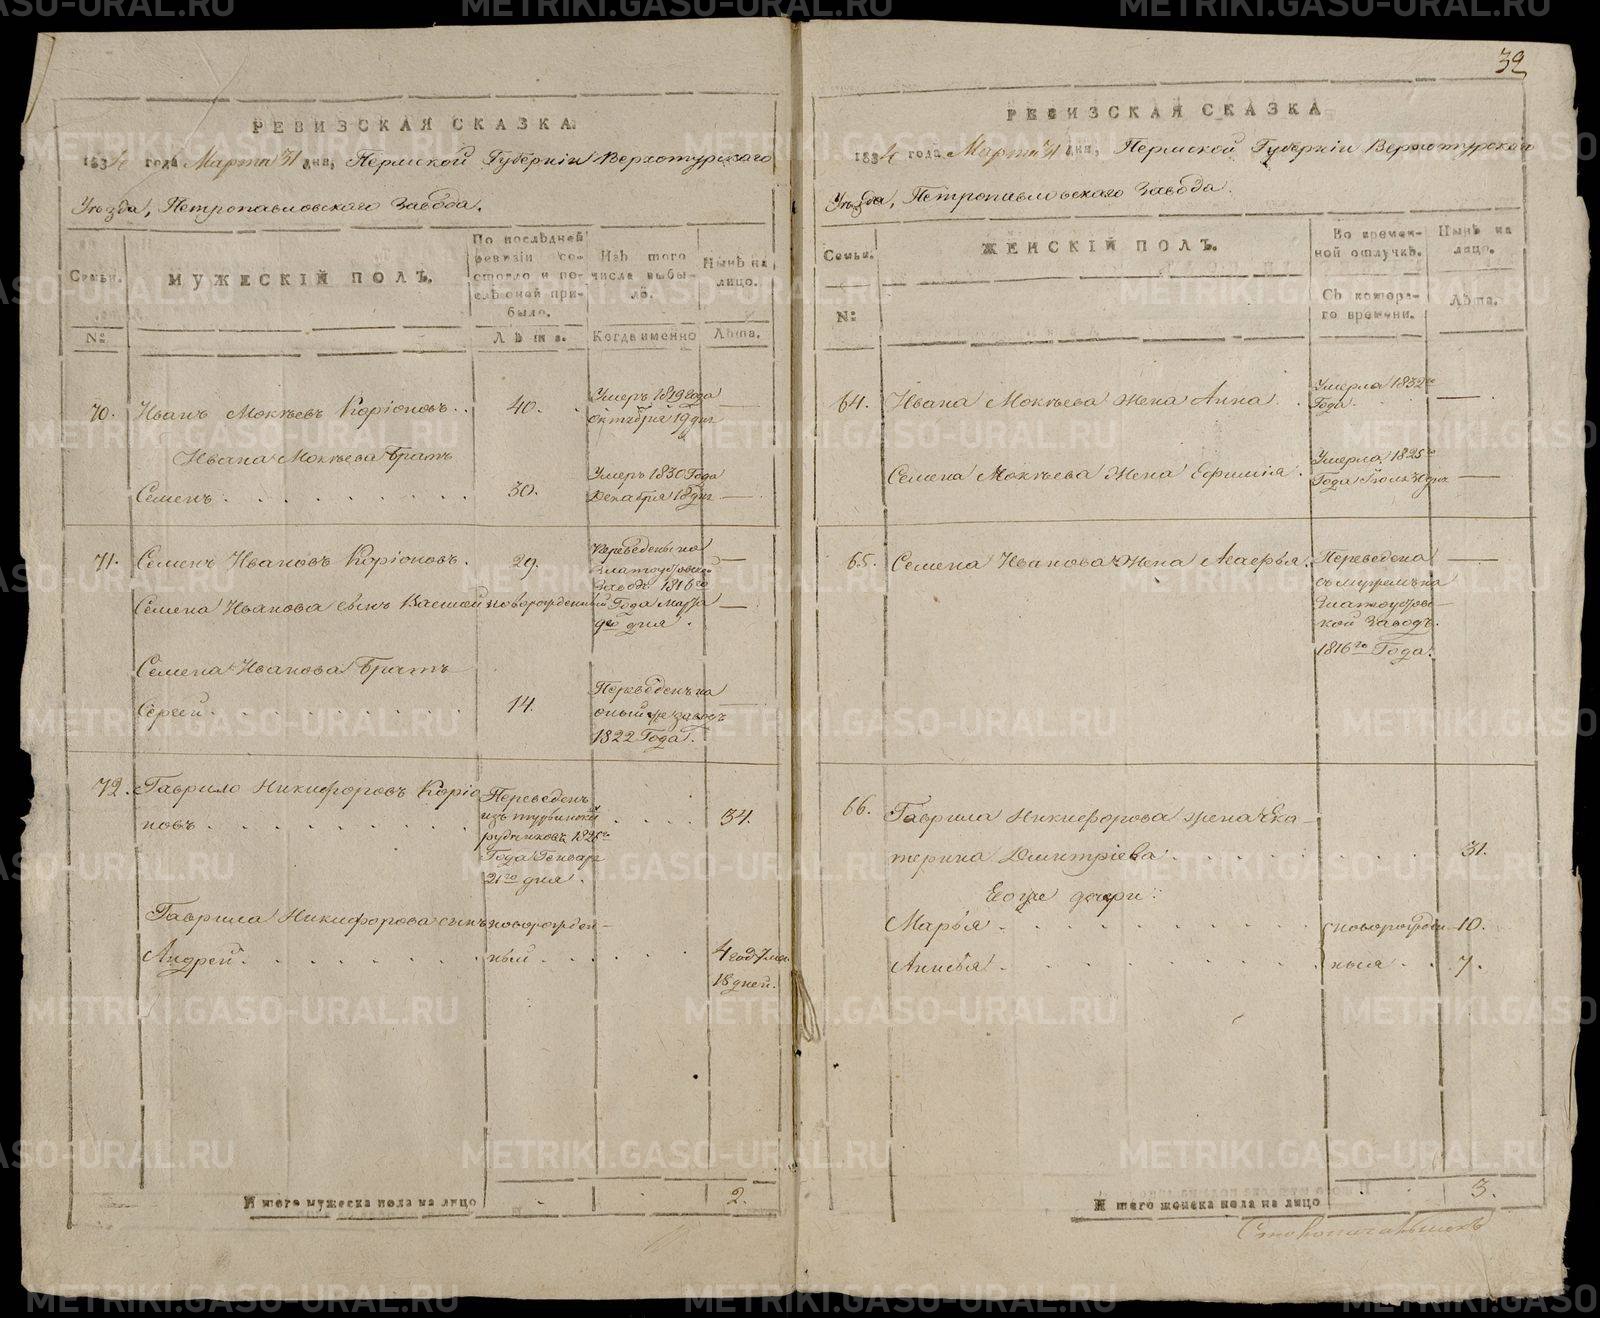 РЕВИЗСКАЯ СКАЗКА
1834 года Марта 31 дня, Пермской Губернiи Верхотурскаго
Уѣзда, Петропавловскаго Завода.
Семьи.
МУЖЕСКIЙ ПОЛЪ.
По послѣдней ревизiи состояло и послѣ оной прибыло.
Изъ того числа выбыло.
Нынѣ на лицо.
№
Лѣта.
Когда именно
Лѣта.
70. Иванъ Мокѣевъ Корiоновъ. 40. Умеръ 1819 года
Октября 19 дня
Ивана Мокѣева братъ
Семенъ 30. Умеръ 1830 Года
Декабря 18 дня
71. Семенъ Ивановъ Корiоновъ. 29. Переведены на
Златоустовской
Заводъ 1816го
Семена Иванова сынъ новорожденный Года Марта
дня.
Семена Иванова братъ
Сергей 14. Переведенъ на
оный же заводъ
1822 Года.
72. Гаврило Никифоровъ Корiо
новъ
Переведенъ
изъ турьинскихъ
рудниковъ
Года Генваря
21го дня.
34.
Гаврила Никифорова сынъ новорожден-
Андрей ный 4 год. 7 ме.
18 дней.
Итого мужеска пола на лицо 2.
39
РЕВИЗСКАЯ СКАЗКА
1834 года Марта 31 дня, Пермской Губернiи Верхотурскаго
Уѣзда, Петропавловскаго Завода.
Семьи.
ЖЕНСКIЙ ПОЛЪ.
Во временной отлучкѣ.
Нынѣ на лицо.
№
Съ котораго времени.
Лѣта.
64. Ивана Мокѣева жена Анна. Умерла 1832го
Года.
Семена Мокѣева жена Ефимiя. Умерла 1825го
Года
65. Семена Иванова жена Переведена
съ мужемъ на
Златоустов-
ской Заводъ.
1816го Года.
66. Гаврила Никифорова жена Ека-
терина Дмитрiева 31.
Еогже дочери:
Марья новорожден- 10.
Анисья ныя 7.
Итого женска пола на лицо 3.
METRIKI.GASO-URAL.RU